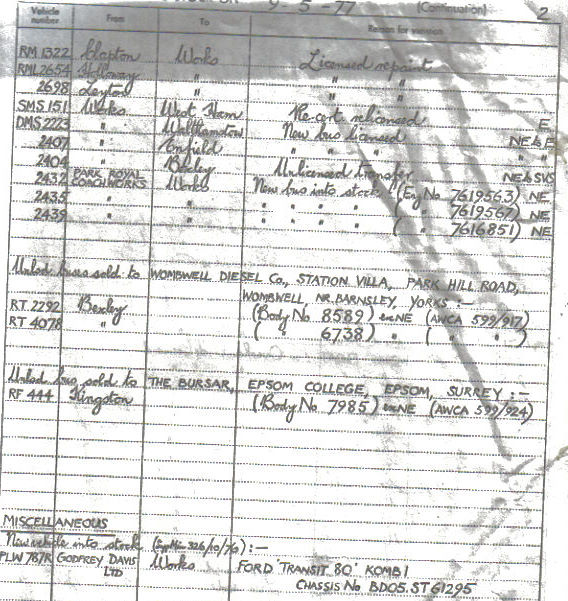 9-5-77 (Continuation) 2
Vehicle number From To Reason for
RM 1322 Clapton Works Licensed repaint
RML 2654 Holloway " " "
2698 Leyton " " "
SMS.151 Works West Ham Re-cert relicensed E
DMS.2223 " Walthamstow New bus licensed NE to E
2407 " Enfield " " " "
2404 " Bexley Unlicensed transfer NE to SVS
2432 PARK ROYAL COACHWORKS Works New bus into stock (Eng No 7619563) NE
2435 " " " " " " ( " 7619567) NE
2439 " " " " " " ( " 7616851) NE
Unlicd buses sold to WOMBWELL DIESEL Co., STATION VILLA, PARK HILL ROAD,
WOMBWELL, NR. BARNSLEY, YORKS :-
RT 2292 Bexley (Body No 8589) ex NE (AWCA 599/917)
RT 4078 " ( " 6738) " ( " " )
Unlicd bus sold to THE BURSAR, EPSOM COLLEGE, EPSOM, SURREY :-
RF 444 Kingston (Body No 7985) ex NE (AWCA 599/924)
MISCELLANEOUS
New vehicle into stock 326/10/76) :-
PLW 787R GODFREY DAVIS LTD Works FORD 'TRANSIT 80' KOMBI
CHASSIS No BD05.ST 61295